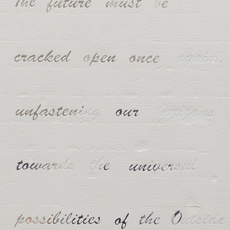 The future must be
cracked open once again,
unfastening our horizons
towards the universal
possibilities of the Outside